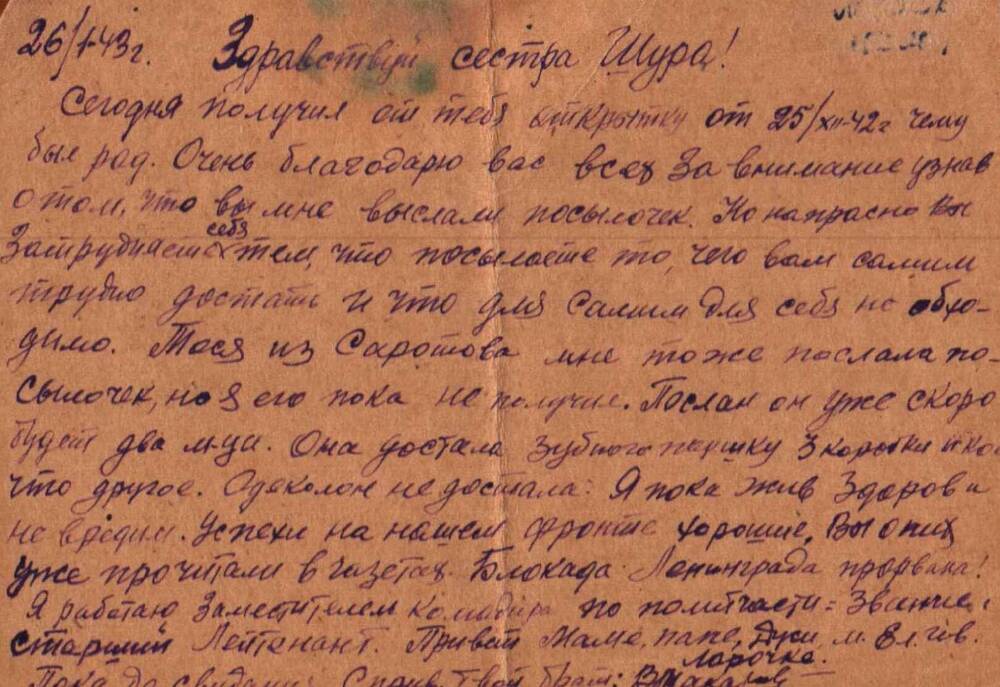 26/I-43г. Здравствуй сестра Шура!
Сегодня получил от тебя открытку от 25/XII-42г чему
был рад. Очень благодарю вас всех за внимание узнав
о том, что вы мне выслали посылочек. Но напрасно вы
затрудняете себя тем, что посылаете то, чего вам самим
трудно достать и что для самим для себя не обхо-
димо. Тося из Саротова мне тоже послала по-
сылочек, но я его пока не получил. Послан он уже скоро
будет два м-ца. Она достала зубного порошку 3 коробки и кое
что другое. Одеколон не достала. Я пока жив здоров и
не вредим. Успехи на нашем фронте хорошие, вы о них
уже прочитали в газетах. Блокада Ленинграда прорвана!
Я работаю заместителем командира по политчасти = Звание:
старший Лейтенант. Привет маме, папе,
Ларочке.
Пока до свидания. Твой брат: